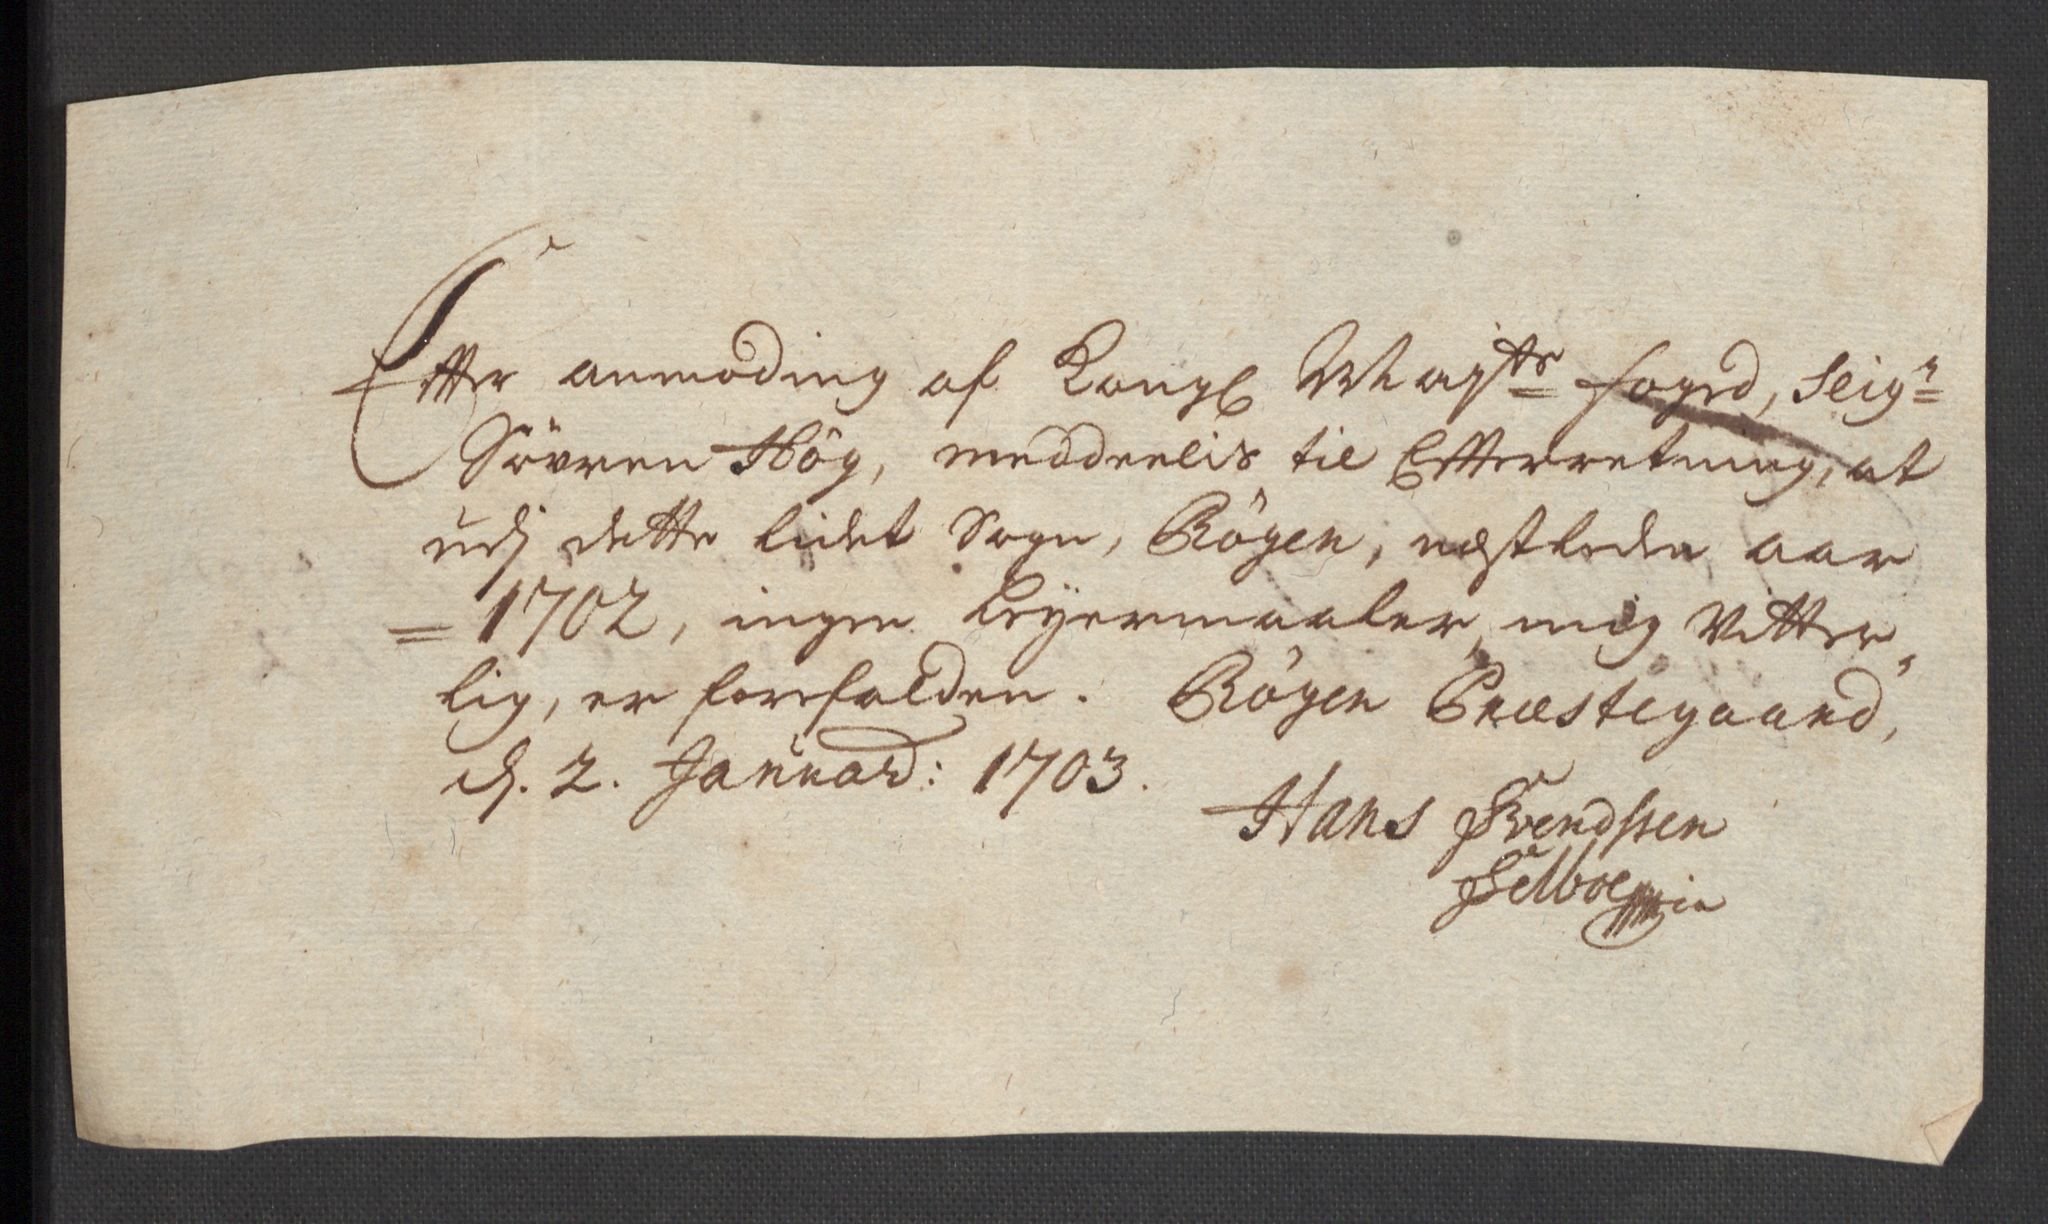 Effter anmoding af Kongl Mayts fogd, Seigr
Sövren Hög, meddeelis til Effterretning, at
udj dette lidet Sogn, Rögen, næstleden aar
= 1702, ingen Leyermaaler, mig vitter,,
lig, er forefalden. Rögen Præstegaard,
d. 2. Januar: 1703.
Hans Svendssen
Selboe